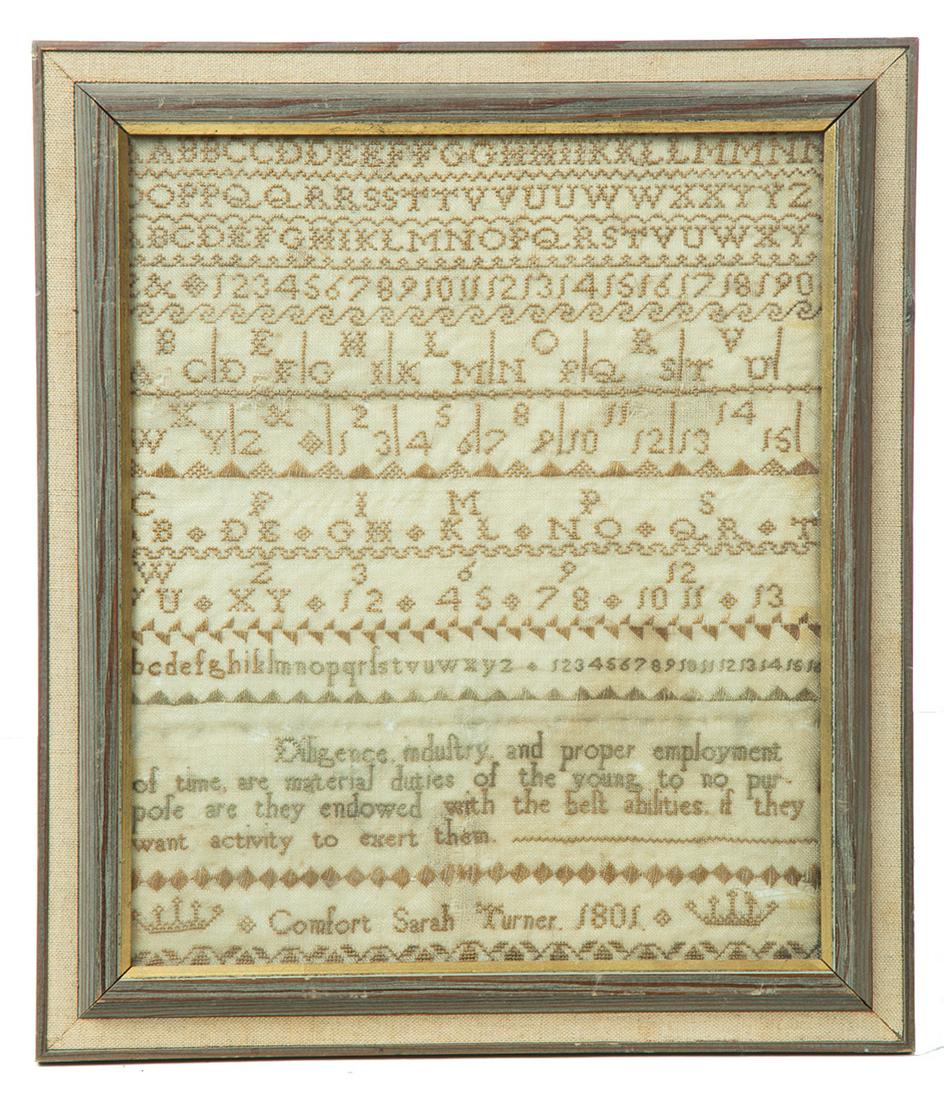 AABBCCDDEEFFGGHHIIKKLLMMNN
OPPQQRRSSTTVVUUWWXXYYZ
ABCDEFGHIKLMNOPQRSTVUWXY
& 1234567891011121314151617181920
B E H L O R V
C D F G I K M N P Q S T U
X & 2 5 8 11 14
W Y Z 1 3 4 6 7 9 10 12 13 15
C F I M P S
B DE GH KL NO QR T
W Z 3 6 9 12
U XY 12 45 78 10 11 13
bcdefghiklmnopqrſstvuwxyz 12345678910111213141516
Diligence, induſtry, and proper employment
of time, are material duties of the young to no pur-
poſe are they endowed with the beſt abilities, if they
want activity to exert them.
Comfort Sarah Turner. 1801.